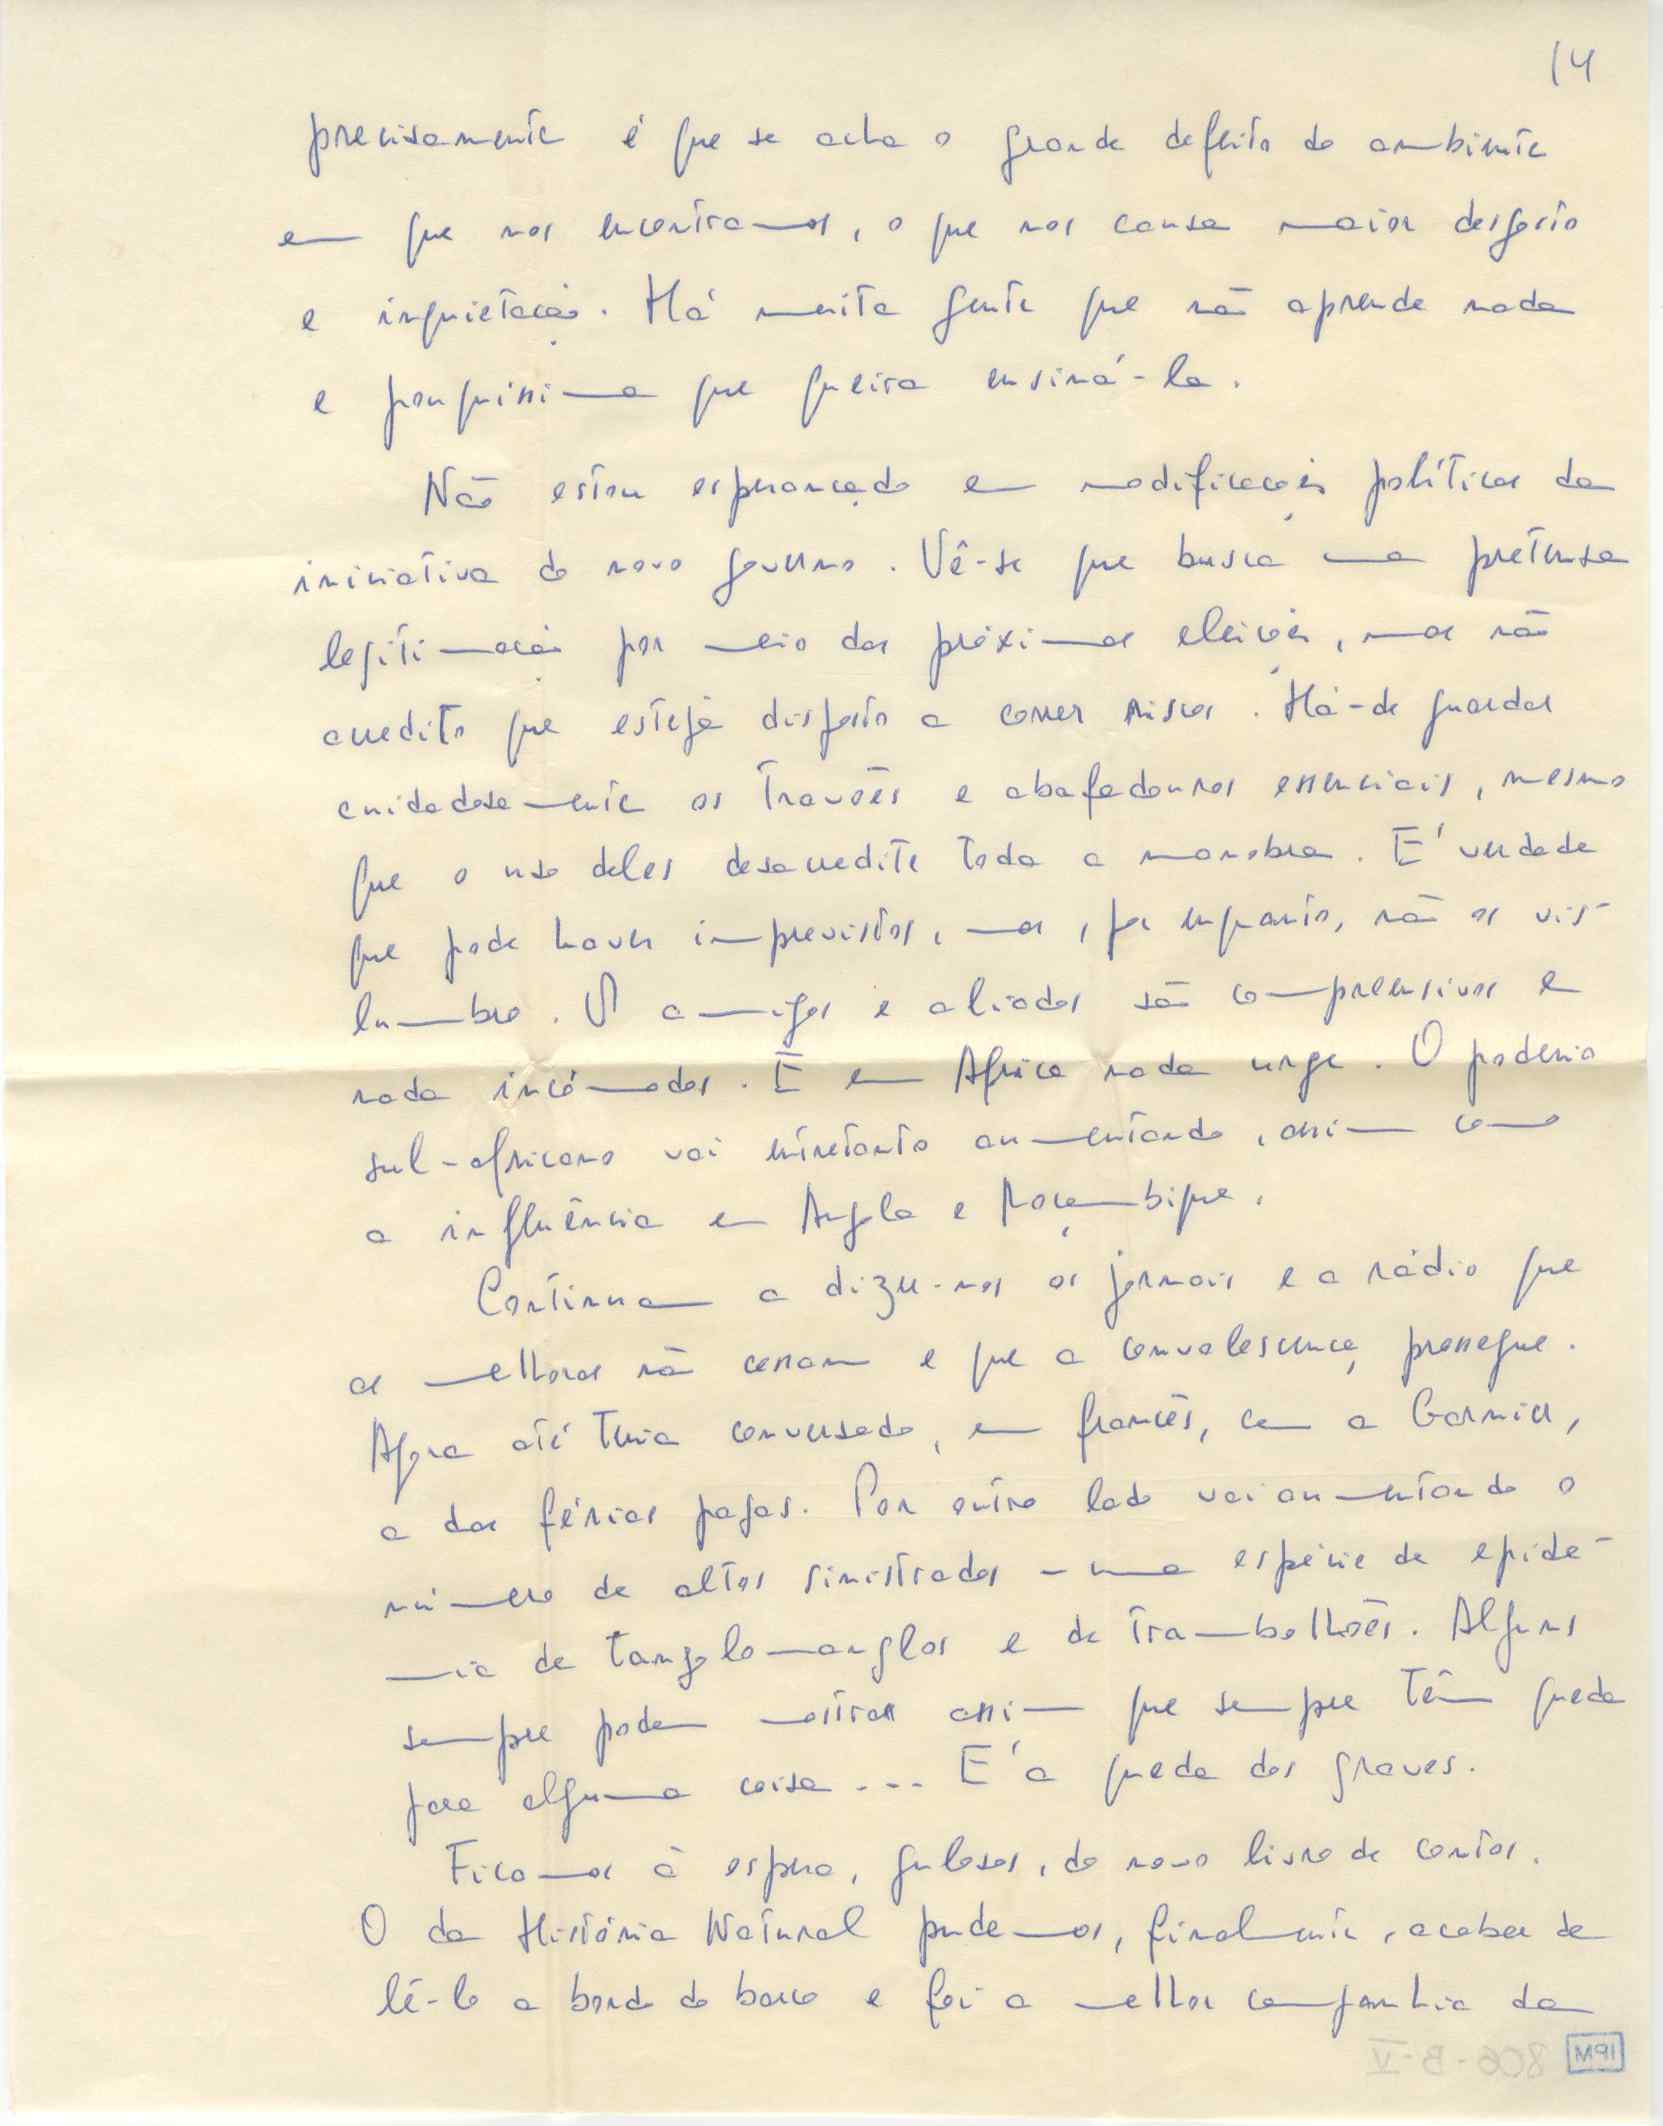 14
precisamente é que se acha o grande defeito do ambiente
em que nos encontramos, o que nos causa maior desgosto
e inquietação. Há muita gente que não aprende nada
e pouquíssima que queira ensiná-la.
Não estou esperançado em modificações políticas da
iniciativa do novo governo. Vê-se que busca uma pretensa
legitimação por meio das próximas eleições, mas não
acredito que esteja disposto a correr riscos. Há-de guardar
cuidadosamente os travões e abafadouros essenciais, mesmo
que o uso deles desacredite toda a manobra. É verdade
que pode haver imprevistos, mas, por enquanto, não os vis-
lumbro. Os amigos e aliados são compreensivos e
nada incómodos. E em África nada urge. O poderio
sul-africano vai entretanto aumentando, assim como
a influência em Angola e Moçambique.
Continuam a dizer-nos os jornais e a rádio que
as melhoras não cessam e que a convalescença prossegue.
Agora até teria conversado, em francês, com a Garnier,
a das férias pagas. Por outro lado vai aumentando o
número de altos sinistrados - uma espécie de epide-
mia de tanglomanglos e de trambolhões. Alguns
sempre podem mostrar assim que sempre têm queda
para alguma coisa.... É a queda dos graves.
Ficamos à espera, gulosos, do novo livro de contos.
O da História Natural pudemos, finalmente, acabar de
lê-lo a bordo do barco e foi a melhor companhia da
806-B-V
IPM